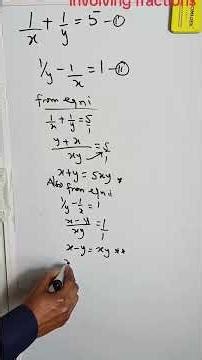 involving fractions
1/x + 1/y = 5 - ①
1/y - 1/x = 1 - ②
from eqn i
1/x + 1/y = 5/1
y + x / xy = 5/1
x + y = 5xy *
Also from eqn ii
1/y - 1/x = 1
x - y / xy = 1/1
x - y = xy **